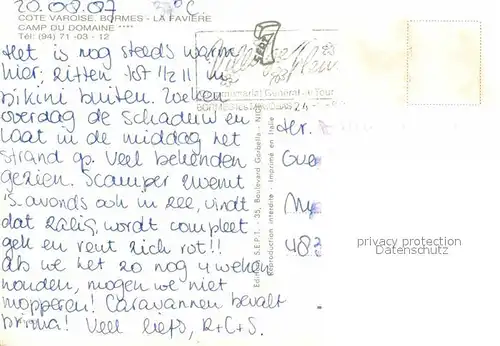 20.08.87 27°C
COTE VAROISE. BORMES - LA FAVIÈRE
CAMP DU DOMAINE ****
Tél: (94) 71-03-12
Het is nog steeds warm
hier, zitten tot 1/2 11 in
bikini buiten. Zoeken
overdag de schaduw en
laat in de middag het
strand op. Veel bekenden
gezien. Scamper zwemt
is avonds ook in zee, vindt
dat zalig, wordt compleet
gek en rent zich rot!!
Als we het zo nog 4 weken
houden, mogen we niet
mopperen! Caravannen bevalt
prima! Veel liefs, R+C+S.
Editions S.E.P.T. - 35, Boulevard Gorbella - NICE
Reproduction interdite - Imprimé en Italie
privacy protection
Datenschutz